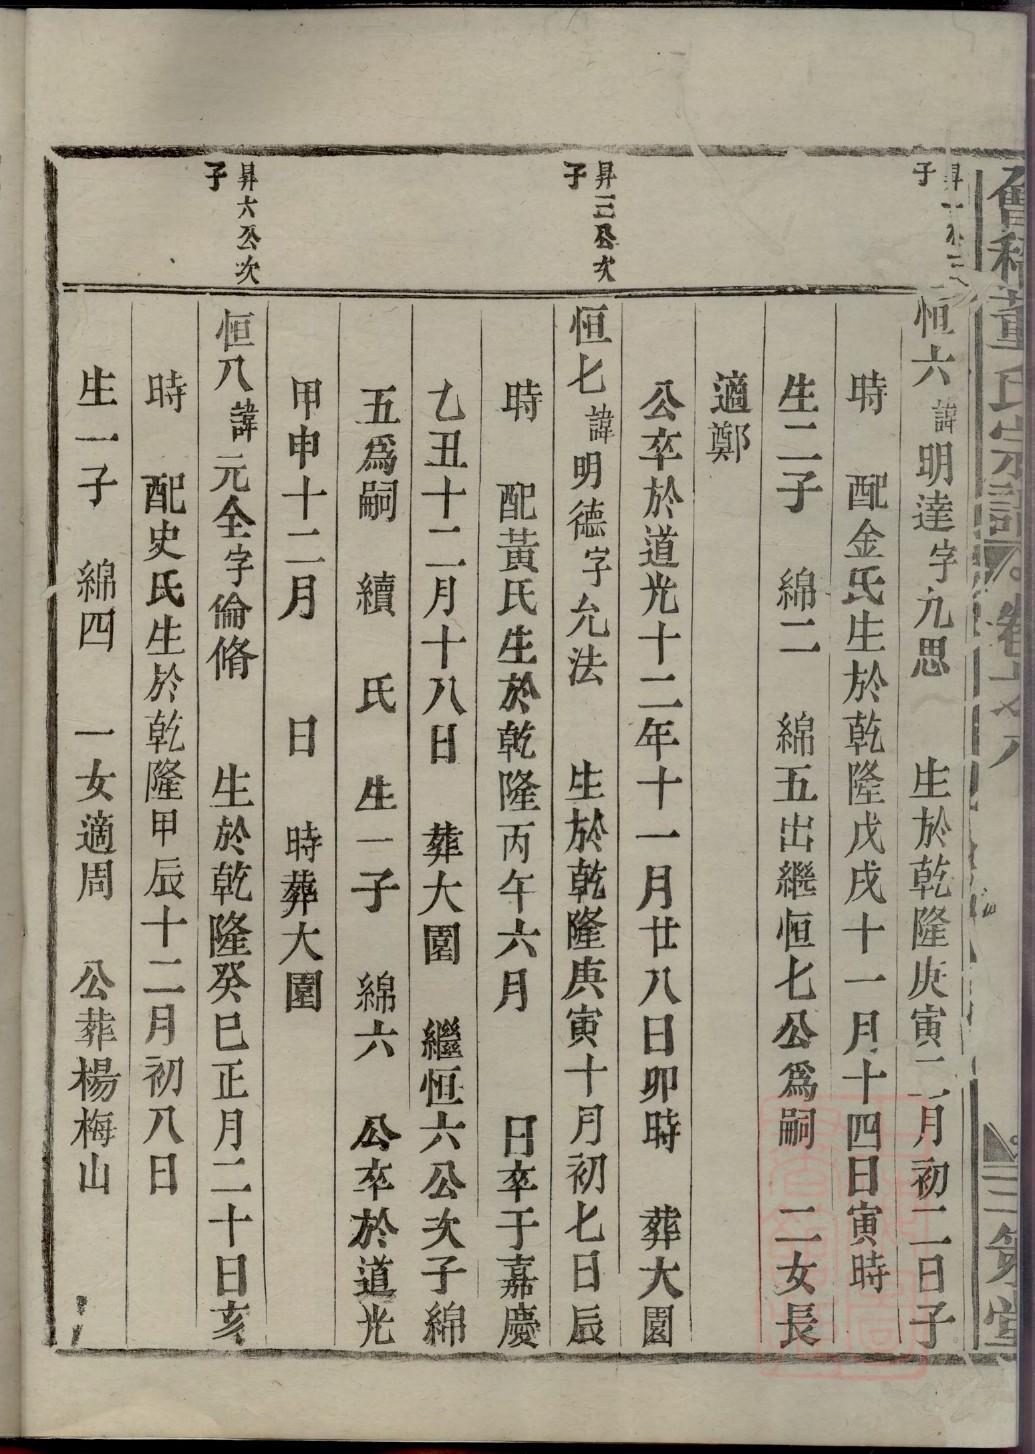 會稽董氏宗譜
卷十八
三策堂
昇一公三
子
恒六諱明達字九思 生於乾隆庚寅二月初二日子
時 配金氏生於乾隆戊戌十一月十四日寅時
生二子 綿二 綿五出繼恒七公為嗣 二女長
適鄭
公卒於道光十二年十一月廿八日卯時 葬大園
昇三公次
子
恒七諱明德字允法 生於乾隆庚寅十月初七日辰
時 配黃氏生於乾隆丙午六月 日卒于嘉慶
乙丑十二月十八日 葬大園 繼恒六公次子綿
五爲嗣 續 氏 生一子 綿六 公卒於道光
甲申十二月 日 時葬大園
昇六公次
子
恒八諱元全字倫脩 生於乾隆癸巳正月二十日亥
時 配史氏生於乾隆甲辰十二月初八日
生一子 綿四 一女適周 公葬楊梅山